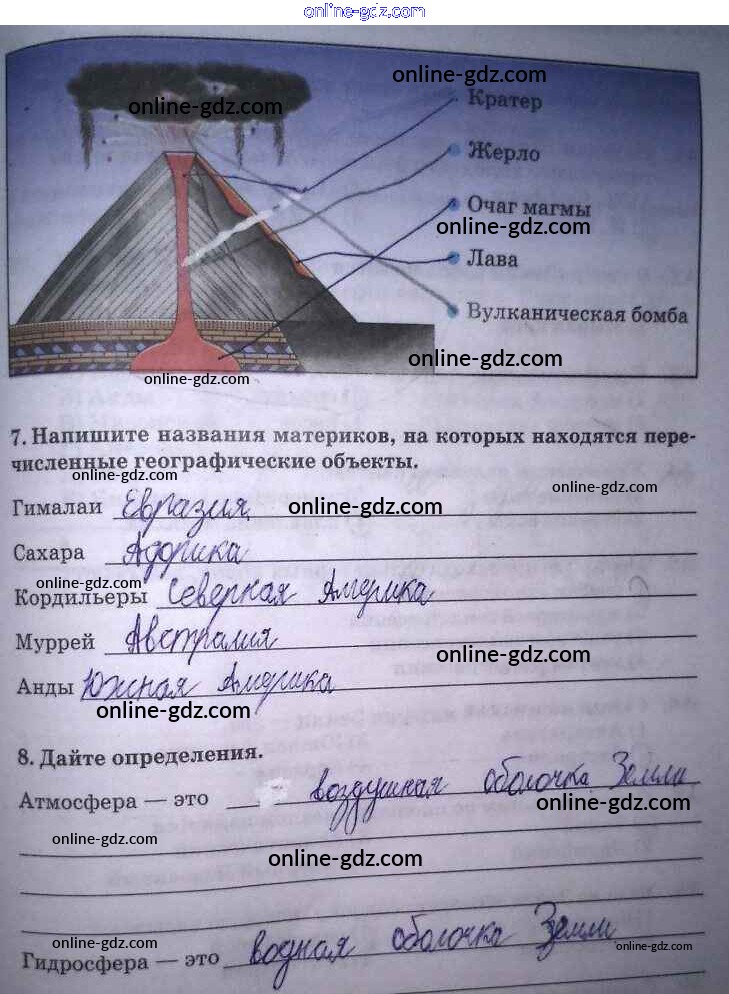 online-gdz.com
online-gdz.com
Кратер
online-gdz.com
Жерло
Очаг магмы
online-gdz.com
Лава
Вулканическая бомба
online-gdz.com
online-gdz.com
7. Напишите названия материков, на которых находятся пере-
численные географические объекты.
online-gdz.com
online-gdz.com
Гималаи Евразия
online-gdz.com
Сахара Африка
online-gdz.com
Кордильеры Северная Америка
Муррей Австралия
online-gdz.com
Анды Южная Америка
online-gdz.com
8. Дайте определения.
Атмосфера — это воздушная оболочка Земли
online-gdz.com
online-gdz.com
online-gdz.com
Гидросфера — это водная оболочка Земли
online-gdz.com
online-gdz.com